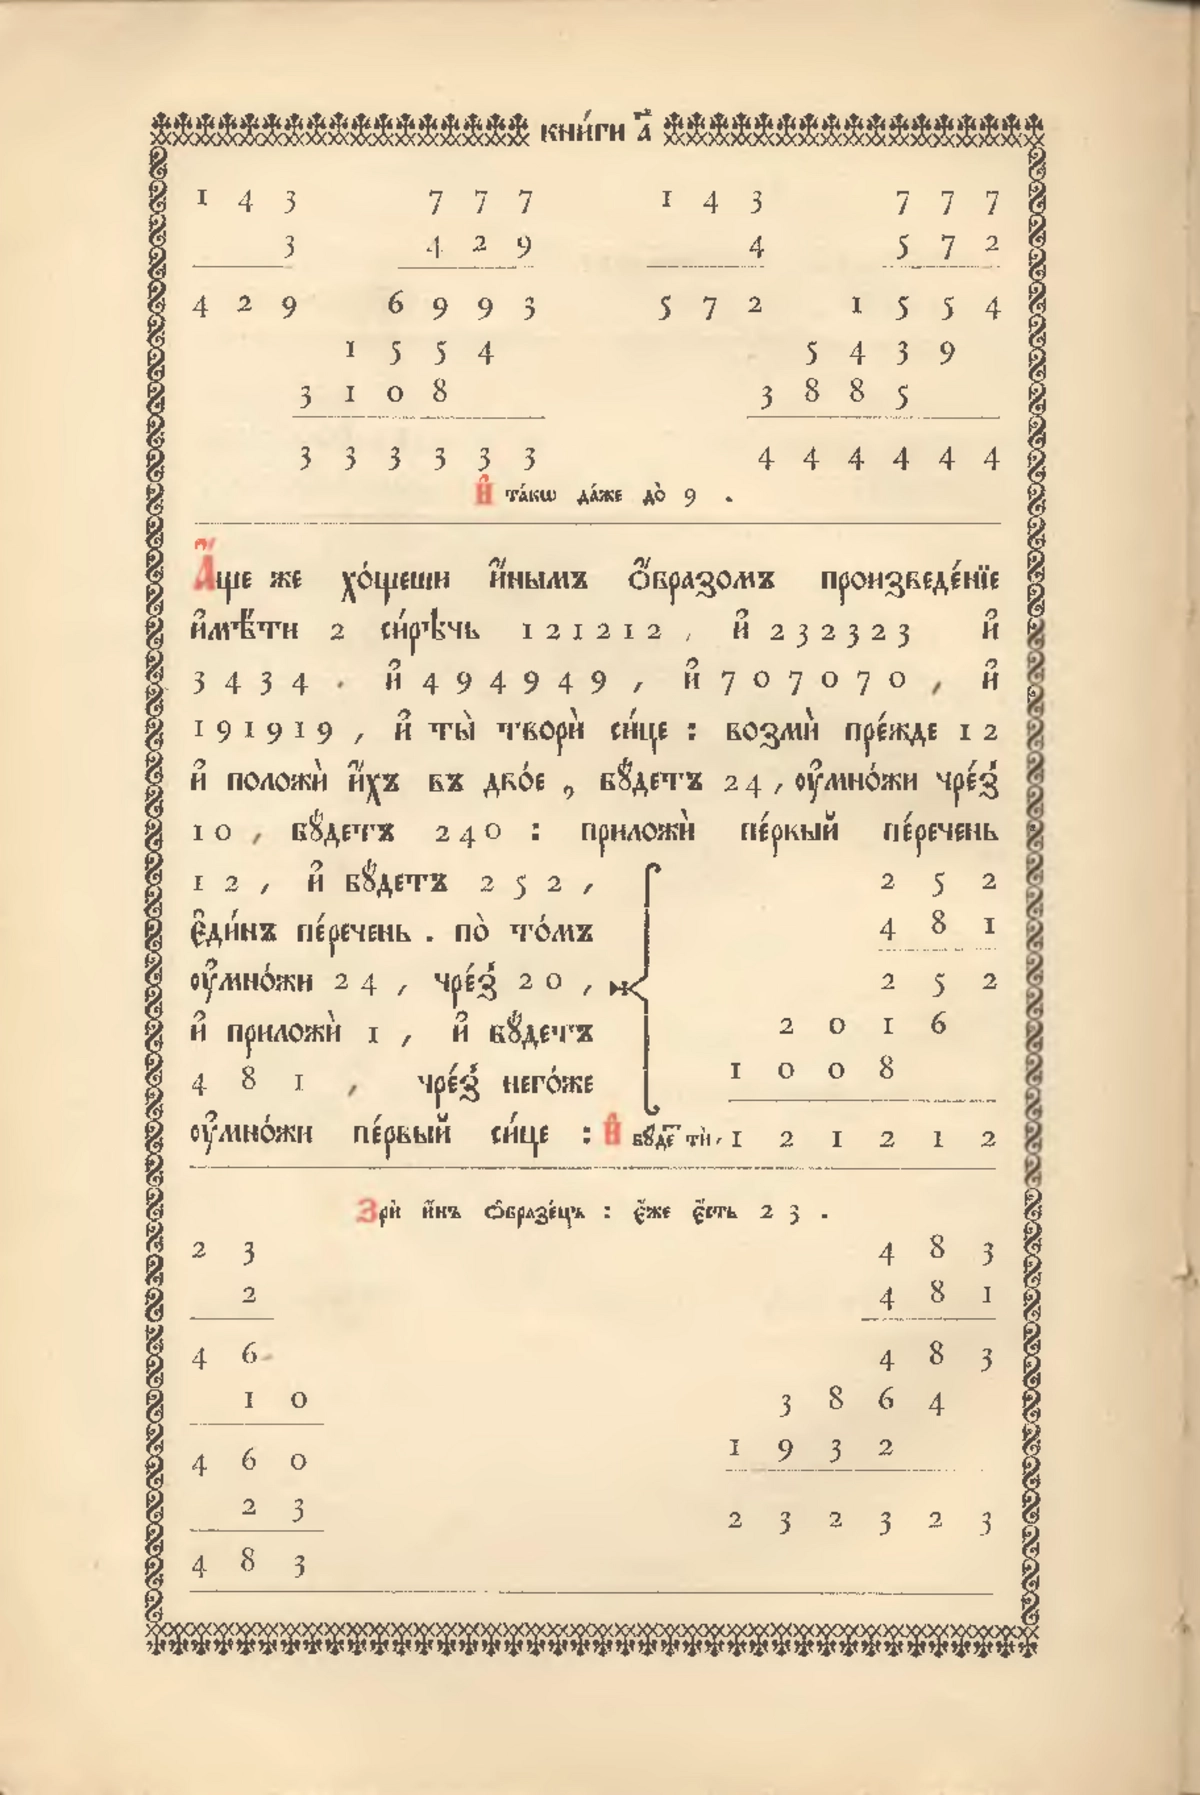 кни́ги а҃
1 4 3 7 7 7 1 4 3 7 7 7
3 4 2 9 4 5 7 2
4 2 9 6 9 9 3 5 7 2 1 5 5 4
1 5 5 4 5 4 3 9
3 1 0 8 3 8 8 5
3 3 3 3 3 3 4 4 4 4 4 4
И҆ та́кѡ да́же до̀ 9 .
А҆́ще же хо́щеши и҆́нымъ ѻ҆́бразомъ произведе́нїе
и҆мѣ́ти 2 си́рѣчь 121212 , и҆ 232323 и҆
3434 . и҆ 494949 , и҆ 707070 , и҆
191919 , и҆ ты̀ твори̂ си́це : возмѝ пре́жде 12
и҆ положѝ и҆́хъ въ дво́е , бꙋ́детъ 24 , ᲂу҆мно́жи чре́з̾
10 , бꙋ́детъ 240 : приложѝ пе́рвый пе́речень
12 , и҆ бꙋ́детъ 252 ,
є҆ди́нъ пе́речень . по̀ то́мъ
ᲂу҆мно́жи 24 , чре́з̾ 20 ,
и҆ приложѝ 1 , и҆ бꙋ́детъ
481 , чре́з̾ него́же
ᲂу҆мно́жи пе́рвый си́це :
2 5 2
4 8 1
2 5 2
2 0 1 6
1 0 0 8
И҆ бꙋ́детъ тѝ , 1 2 1 2 1 2
Зрѝ и҆́нъ ѻ҆бразе́цъ : є҆́же є҆́сть 23 .
2 3 4 8 3
2 4 8 1
4 6 4 8 3
1 0 3 8 6 4
4 6 0 1 9 3 2
2 3 2 3 2 3 2 3
4 8 3